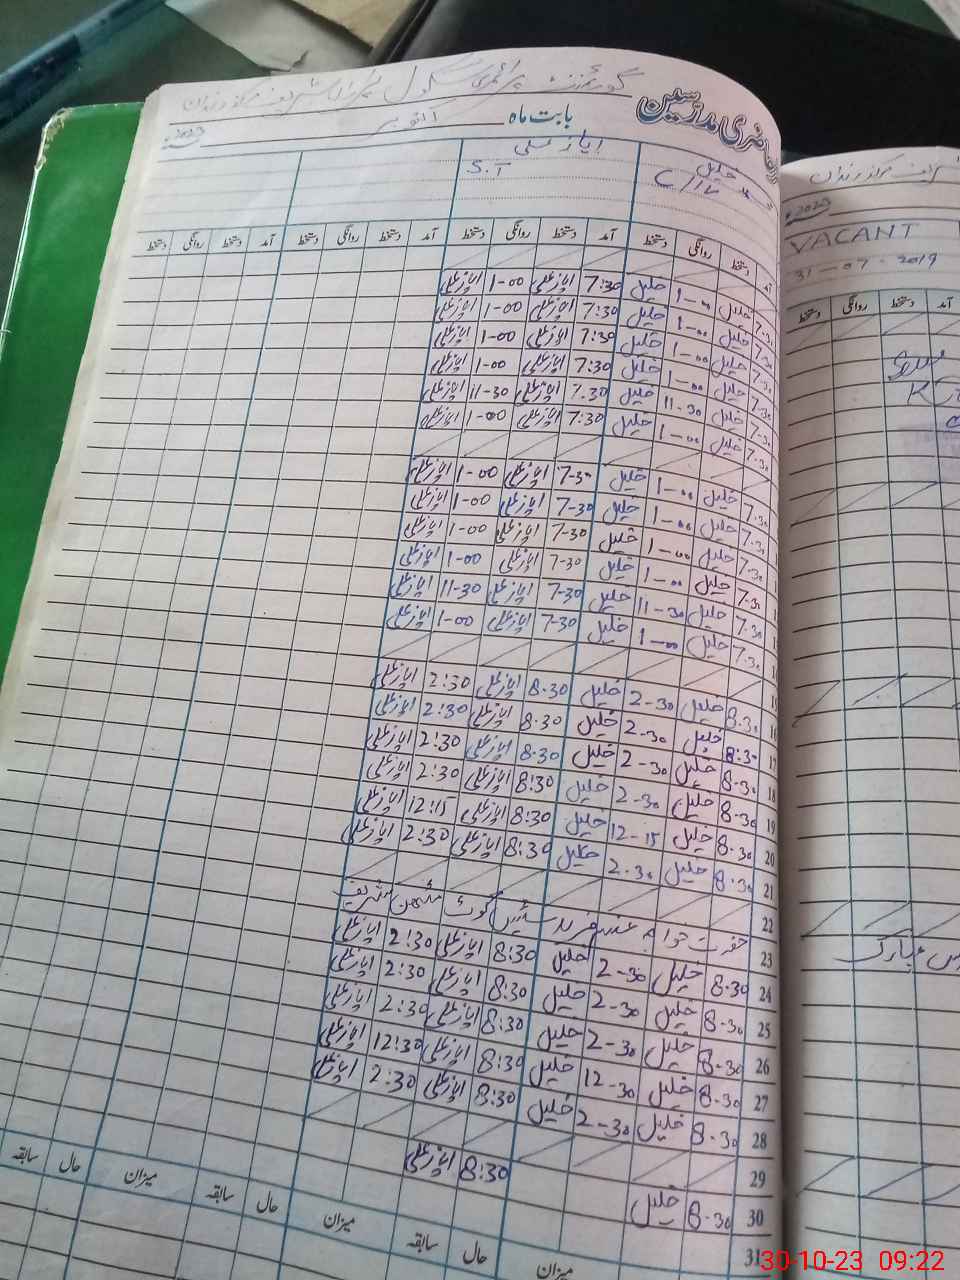 گورنمنٹ پرائمری سکول
حاضری مدرسین بابت ماہ اکتوبر 2023
خلیل ایاز علی
S.T
آمد دستخط روانگی دستخط آمد دستخط روانگی دستخط آمد دستخط روانگی دستخط
7.30 خلیل 1-00 خلیل 7:30 ایاز علی 1-00 ایاز علی
7.30 خلیل 1-00 خلیل 7:30 ایاز علی 1-00 ایاز علی
7.30 خلیل 1-00 خلیل 7:30 ایاز علی 1-00 ایاز علی
7.30 خلیل 1-00 خلیل 7:30 ایاز علی 1-00 ایاز علی
7.30 خلیل 11-30 خلیل 7.30 ایاز علی 11-30 ایاز علی
7.30 خلیل 1-00 خلیل 7:30 ایاز علی 1-00 ایاز علی
7.30 خلیل 1-00 خلیل 7-30 ایاز علی 1-00 ایاز علی
7.30 خلیل 1-00 خلیل 7-30 ایاز علی 1-00 ایاز علی
7.30 خلیل 1-00 خلیل 7-30 ایاز علی 1-00 ایاز علی
7.30 خلیل 1-00 خلیل 7-30 ایاز علی 1-00 ایاز علی
7.30 خلیل 11-30 خلیل 7-30 ایاز علی 11-30 ایاز علی
7.30 خلیل 1-00 خلیل 7-30 ایاز علی 1-00 ایاز علی
15
16 8.30 خلیل 2-30 خلیل 8.30 ایاز علی 2:30 ایاز علی
17 8:30 خلیل 2-30 خلیل 8.30 ایاز علی 2:30 ایاز علی
18 8-30 خلیل 2-30 خلیل 8.30 ایاز علی 2:30 ایاز علی
19 8-30 خلیل 2-30 خلیل 8:30 ایاز علی 2:30 ایاز علی
20 8.30 خلیل 12-15 خلیل 8:30 ایاز علی 12:15 ایاز علی
21 8.30 خلیل 2.30 خلیل 8:30 ایاز علی 2:30 ایاز علی
22
23 حضرت خواجہ غلام فرید سائیں کوٹ مٹھن شریف
24 8.30 خلیل 2-30 خلیل 8:30 ایاز علی 2:30 ایاز علی
25 8.30 خلیل 2-30 خلیل 8:30 ایاز علی 2:30 ایاز علی
26 8.30 خلیل 2-30 خلیل 8:30 ایاز علی 2:30 ایاز علی
27 8.30 خلیل 12-30 خلیل 8:30 ایاز علی 12:30 ایاز علی
28 8.30 خلیل 2-30 خلیل 8:30 ایاز علی 2:30 ایاز علی
29
30 8.30 خلیل 8:30 ایاز علی
31
میزان حال سابقہ میزان حال سابقہ میزان حال سابقہ
2023
VACANT
31-07-2019
آمد دستخط روانگی دستخط
30-10-23 09:22